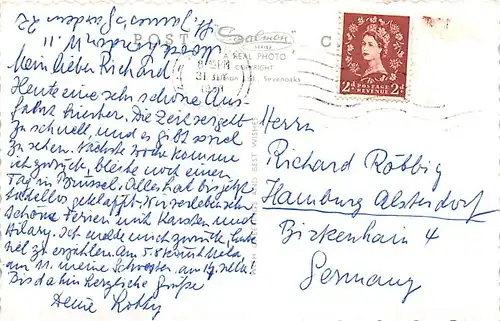 POST C
Salmon
SERIES
A REAL PHOTO
COPYRIGHT
Sevenoaks
31 JLY
2d POSTAGE REVENUE 2d
WITH BEST WISHES
Mein lieber Richard!
Heute eine sehr schöne Aus-
fahrt hierher. Die Zeit vergeht
zu schnell, und es gibt so viel
zu sehen. Nächste Woche komme
ich zurück, bleibe noch einen
Tag in Brüssel. Alles hat bis jetzt
tadellos geklappt. Wir verleben
schöne Ferien mit Karsten und
Hilary. Ich melde mich zurück, habe
viel zu erzählen. Am 5. kommt
am 11. meine Schwester, am 14.
Bis dahin herzliche Grüße
Deine Lotty
Herrn
Richard Röbbig
Hamburg Alsterdorf
Birkenhain 4
Germany